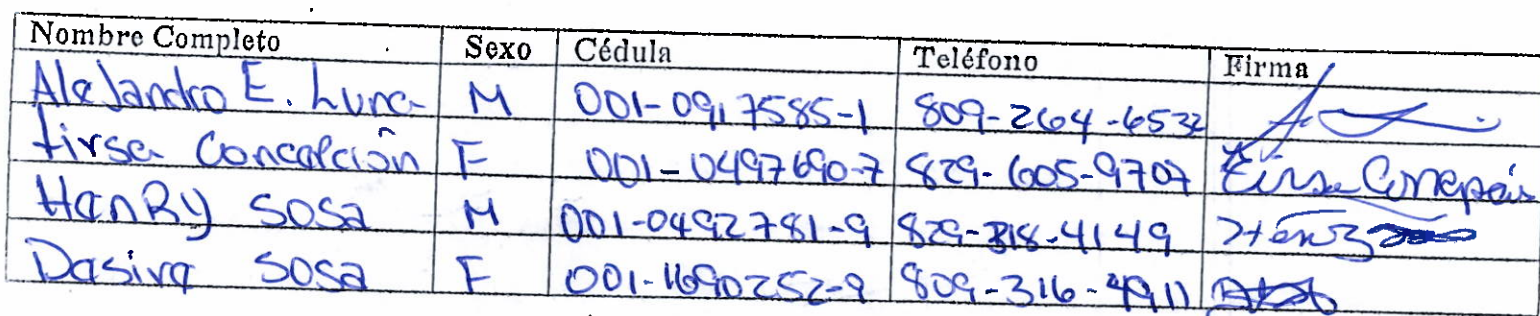 Nombre Completo Sexo Cédula Teléfono Firma
Alejandro E. Luna M 001-0917585-1 809-264-6532
Tirsa Concepción F 001-0497690-7 829-605-9707 Tirsa Concepción
HenRy sosa M 001-0492781-9 829-318-4149 Henry
Dasira sosa F 001-1690252-9 809-316-4911